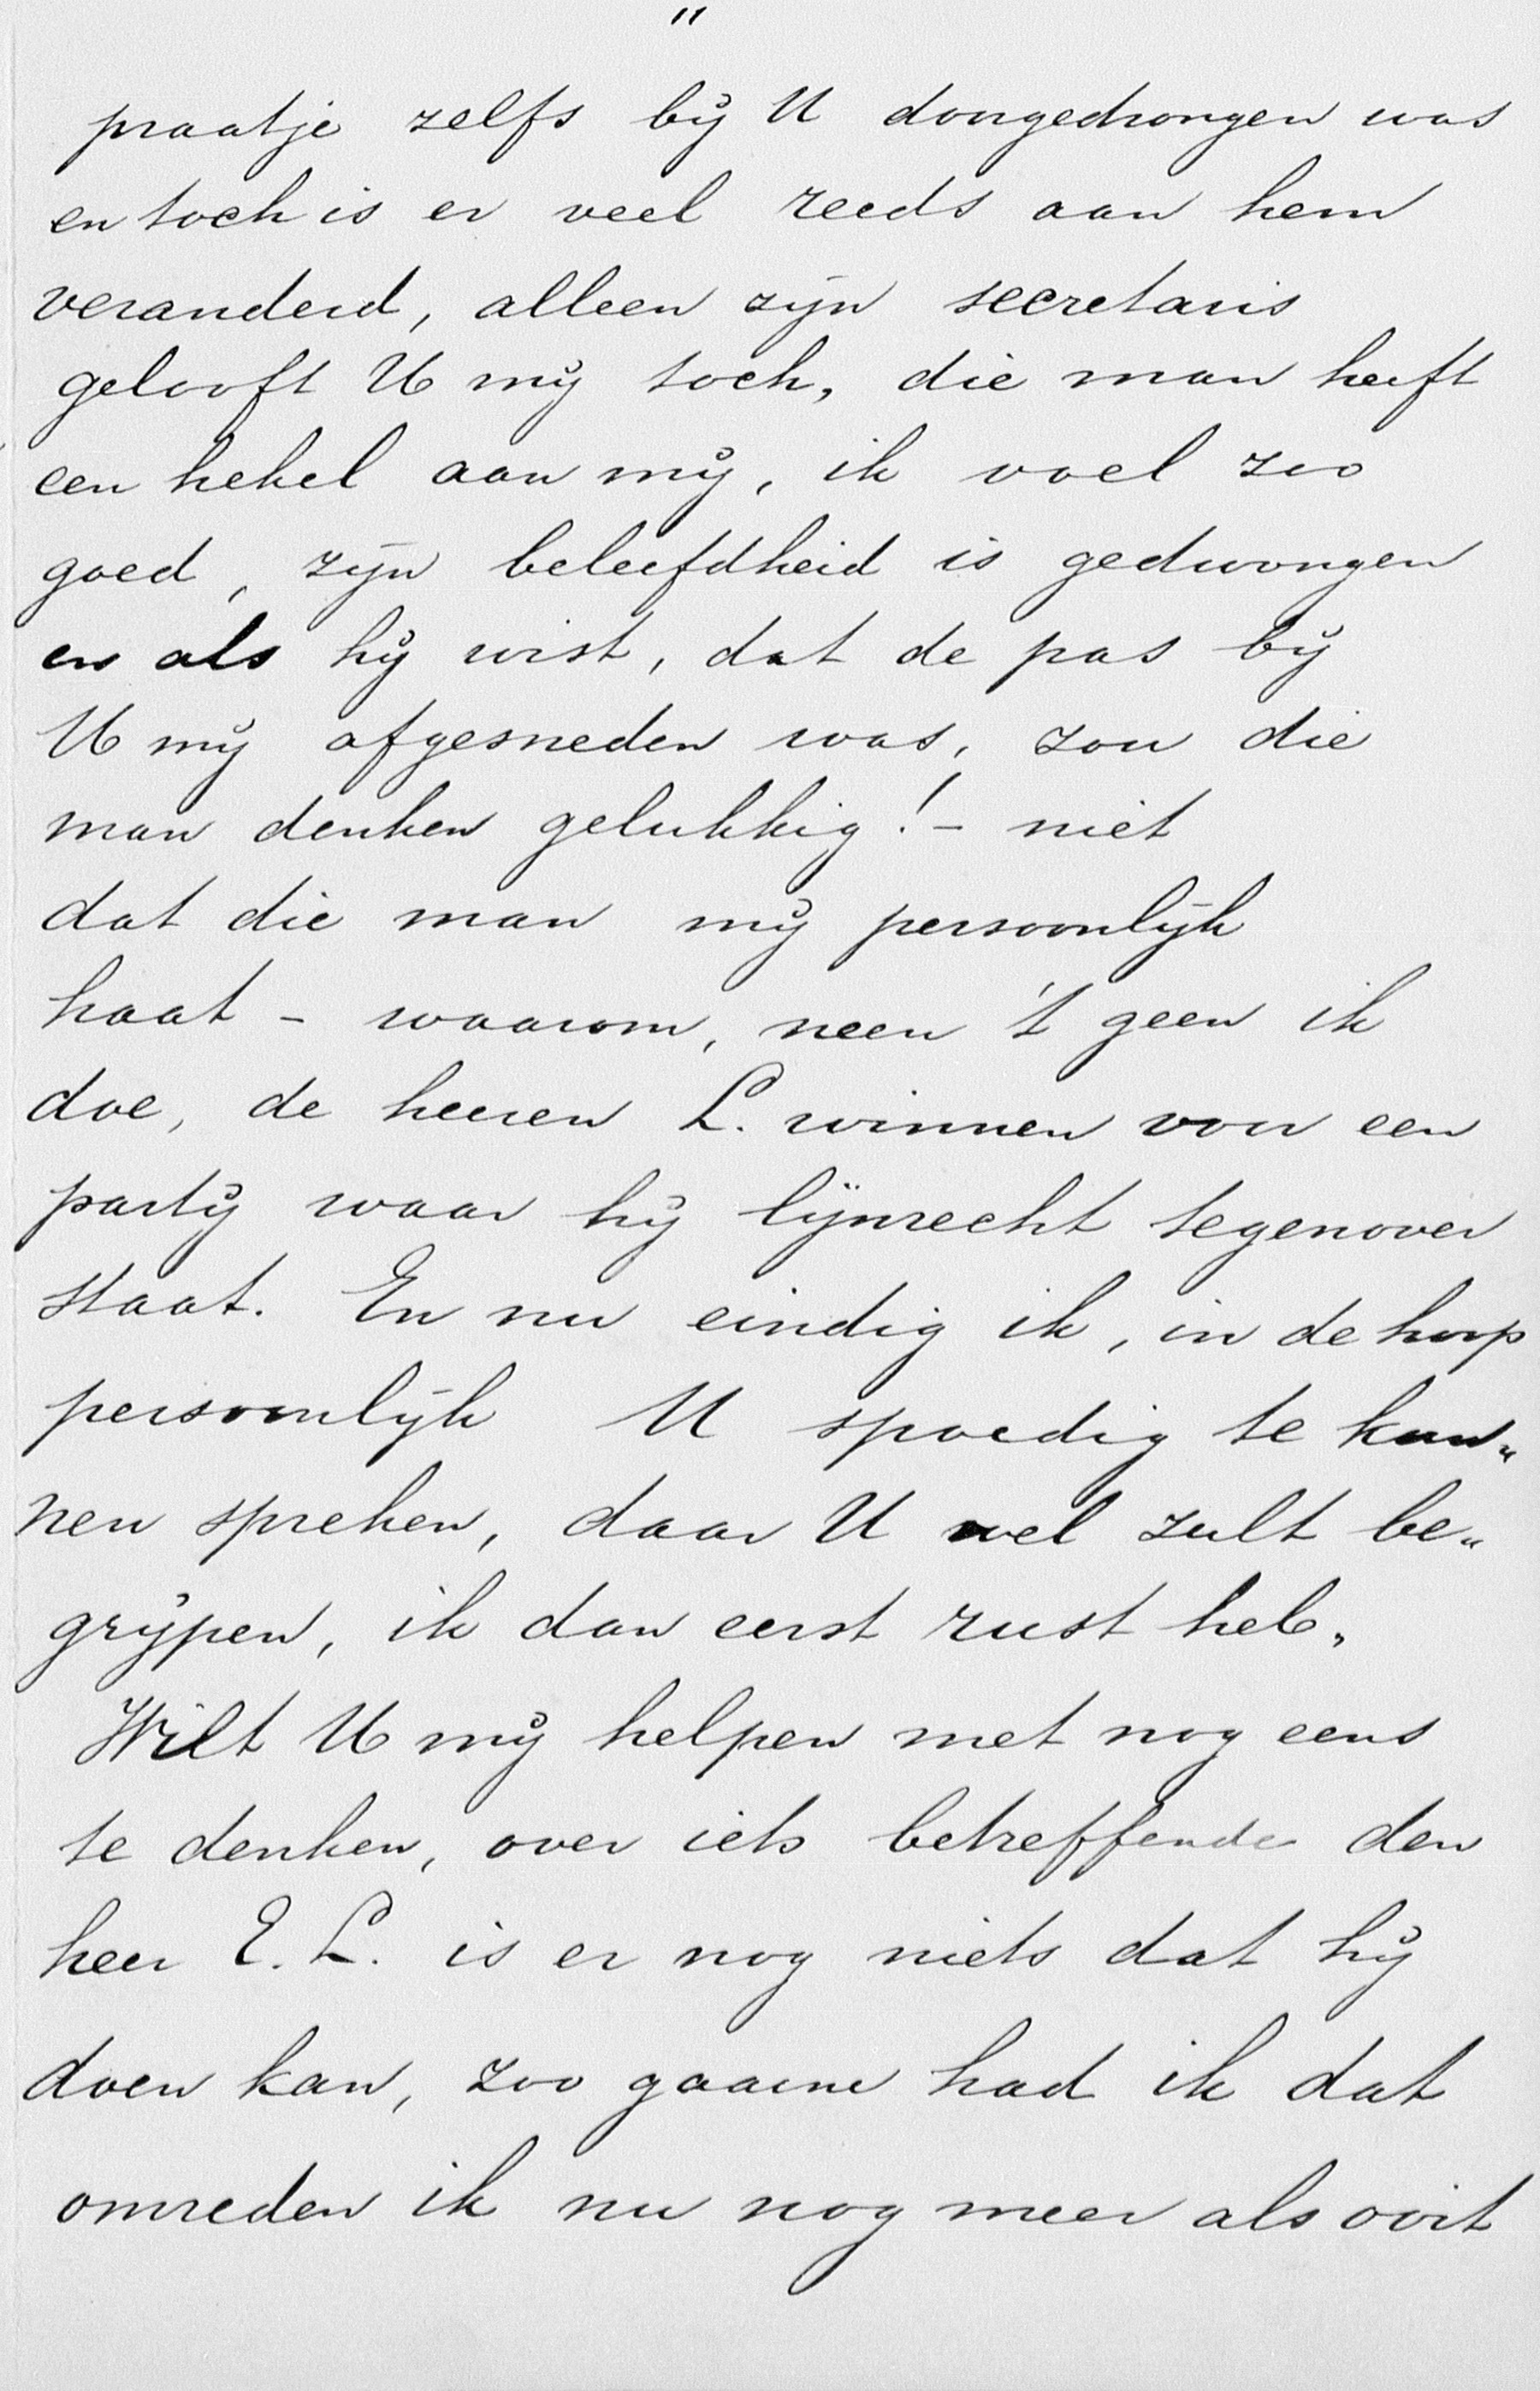 "
praatje zelfs bij U doorgedrongen was
en toch is er veel reeds aan hem
veranderd, alleen zijn secretaris
gelooft U mij toch, die man heeft
een hekel aan mij, ik voel zoo
goed, zijn beleefdheid is gedwongen
en als hij wist, dat de pas bij
U mij afgesneden was, zou die
man denken gelukkig! - niet
dat die man mij persoonlijk
haat - waarom, neen 't geen ik
doe, de heeren L. winnen voor een
partij waar hij lijnrecht tegenover
staat. En nu eindig ik, in de hoop
persoonlijk U spoedig te kun„
nen spreken, daar U wel zult be„
grijpen, ik dan eerst rust heb.
Wilt U mij helpen met nog eens
te denken, over iets betreffende den
heer E. L. is er nog niets dat hij
doen kan, zoo gaarne had ik dat
omreden ik nu nog meer als ooit